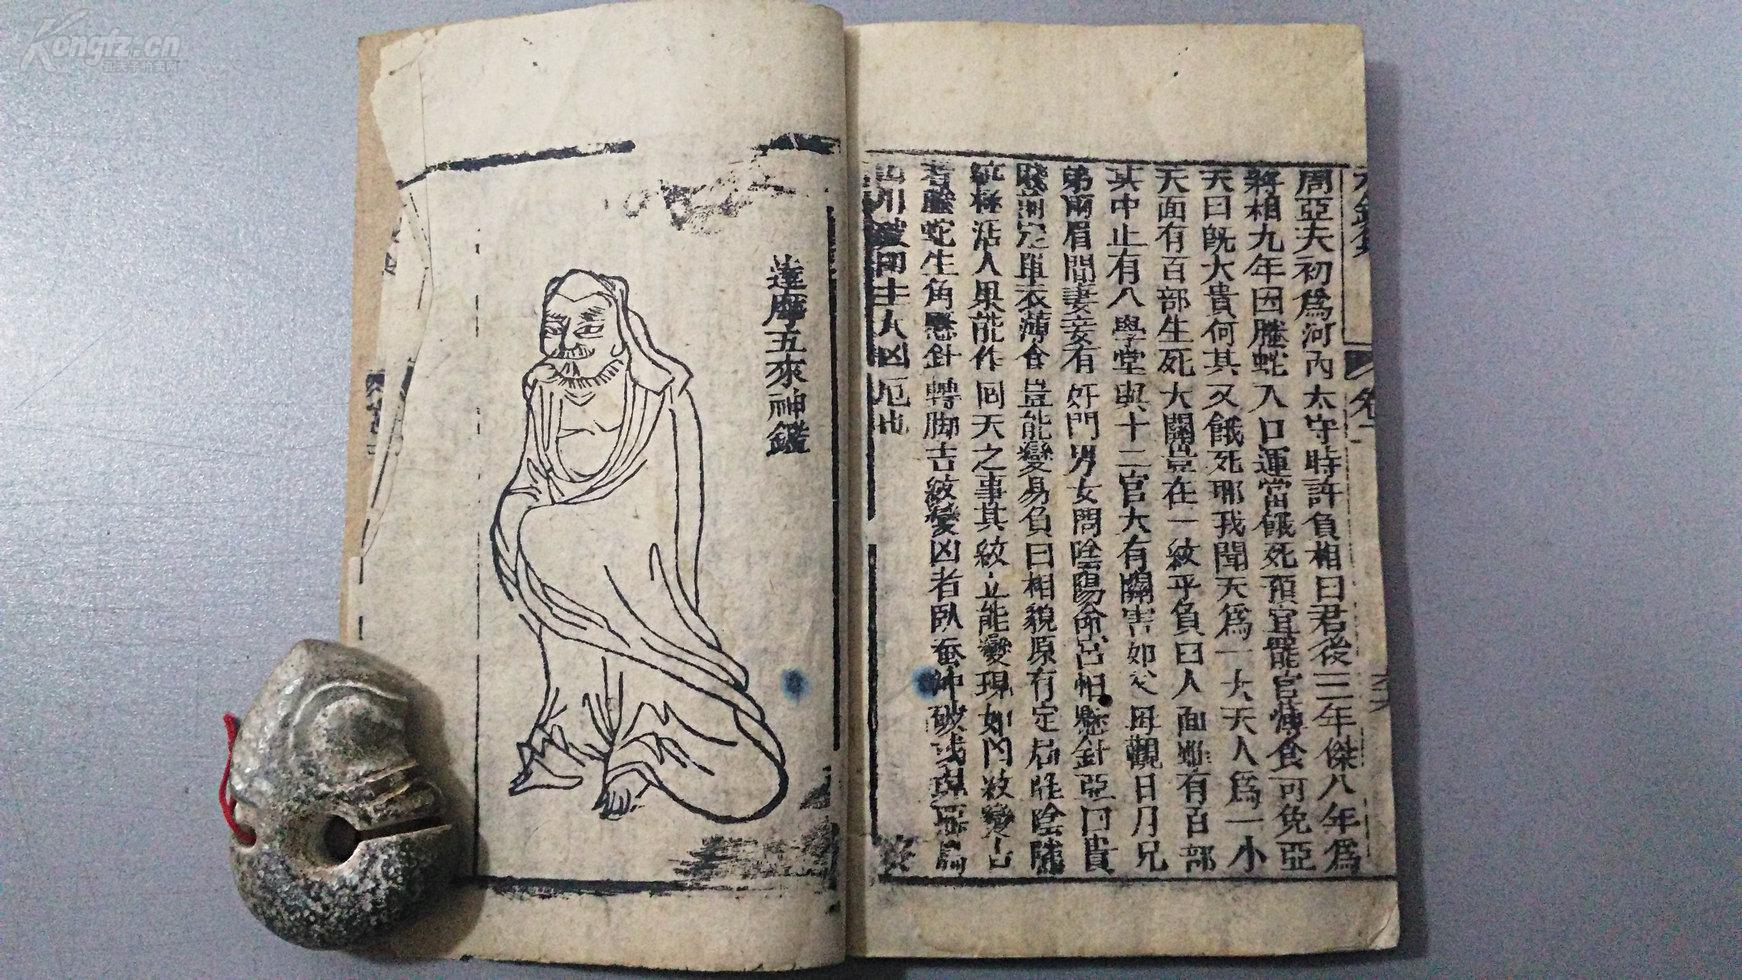 周亞夫初爲河內太守時許負相曰君後三年傑八年爲
將相九年因螣蛇入口運當餓死預宜罷官薄食可免亞
夫曰既大貴何其又餓死耶我聞天爲一大天人爲一小
天面有百部生死大關豈在一紋乎負曰人面雖有百部
其中止有八學堂與十二宮大有關害如父母觀日月兄
弟兩眉間妻妾有奸門男女問陰陽命宮怕懸針亞曰貴
賤前定單衣薄食豈能變易負曰相貌原有定局陰陰隲
紋極活人果能作回天之事其紋立能變現如內紋變吉
着螣蛇生角懸針轉脚吉紋變凶者臥蚕冲破
主人凶厄也
卷二
達摩五來神鑑
Kongfz.cn